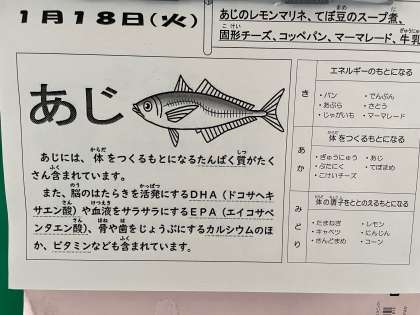 1月18日(火)
あじのレモンマリネ、てぼ豆のスープ煮、
固形チーズ、コッペパン、マーマレード、牛乳
あじ
あじには、体をつくるもとになるたんぱく質がたく
さん含まれています。
また、脳のはたらきを活発にするDHA(ドコサヘキ
サエン酸)や血液をサラサラにするEPA(エイコサペ
ンタエン酸)、骨や歯をじょうぶにするカルシウムのほ
か、ビタミンなども含まれています。
エネルギーのもとになる
き
・パン ・でんぷん
・あぶら ・さとう
・じゃがいも ・マーマレード
体をつくるもとになる
あか
・ぎゅうにゅう ・あじ
・ぶたにく ・てぼまめ
・こけいチーズ
体の調子をととのえるもとになる
みどり
・たまねぎ ・レモン
・キャベツ ・にんじん
・さんどまめ ・コーン